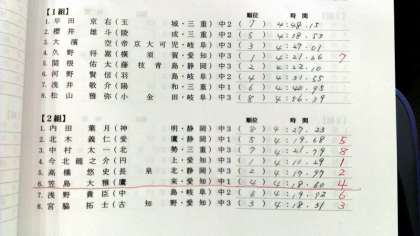 【1組】 順位 時間
1. 早田 京右(玉 城・三重)中2 (7) 4:48.15
2. 櫻井 雄斗(陵 成・三重)中2 (5) 4:38.53
3. 大濱 空(帝京大可児・岐阜)中3 (3) 4:27.01
4. 久野 将富(横須賀・愛知)中3 (1) 4:21.26 7
5. 関根 佑太(藤枝青島・静岡)中3 (2) 4:22.10
6. 河野 賢信(羽 島・岐阜)中2 (4) 4:31.55
7. 浅井 敬介(陽 和・三重)中1 (6) 4:40.95
8. 松山 雅弥(小金田・岐阜)中2
【2組】 順位 時間
1. 内田 葉月(神 明・静岡)中3 4:27.23
2. 北本 義仁(愛 鷹・静岡)中1 (5) 4:19.68 5
3. 中村 太一(北 勢・三重)中3 (7) 4:21.79 8
4. 今北 龍之介(円 上・愛知)中3 (1) 4:10.29 1
5. 高橋 悠史(長泉北・静岡)中3 (2) 4:17.97 2
6. 笠島 大雅(鷹 来・愛知)中3 (4) 4:18.60 4
7. 浅野 貴臣(中 島・岐阜)中3 (6) 4:19.92 6
8. 宮脇 拓士(古知野・愛知)中3 (3) 4:18.31 3